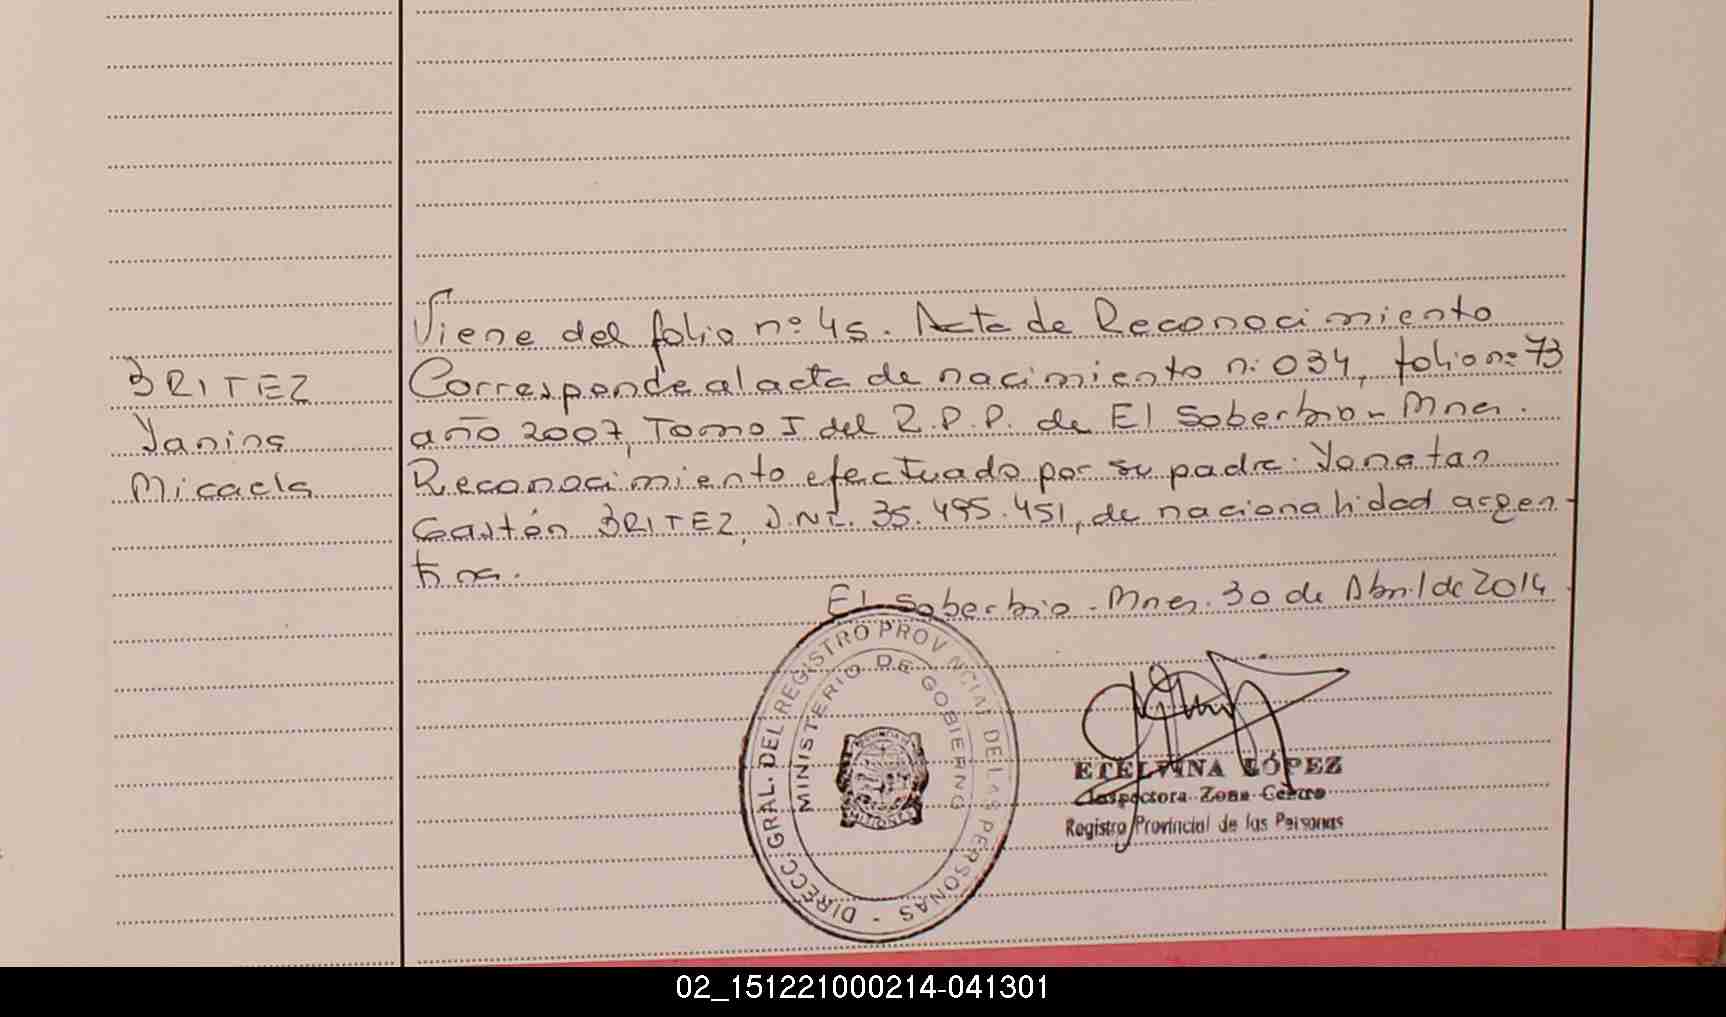 Viene del folio nº 45. Acta de Reconocimiento
BRITEZ
Corresponde al acta de nacimiento nº 034, folio nº 73
Yanina
año 2007, Tomo I del R.P.P. de El Soberbio - Mnes.
Micaela
Reconocimiento efectuado por su padre: Yonatan
Gastón BRITEZ, D.N.I. 35.495.451, de nacionalidad argen-
tina.
El Soberbio - Mnes. 30 de Abril de 2014
DIRECC. GRAL. DEL REGISTRO PROVINCIAL DE LAS PERSONAS -
MINISTERIO DE GOBIERNO
MISIONES
ETELVINA LÓPEZ
Inspectora Zona Centro
Registro Provincial de las Personas
02_151221000214-041301